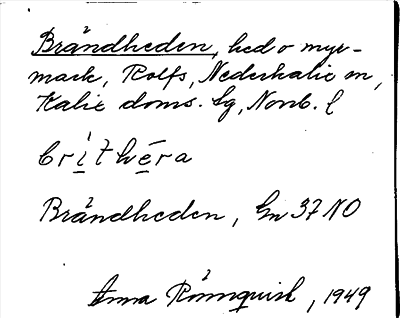 Brändheden, hed o myr-
mark, Rolfs, Nederkalix sn,
Kalix doms. lg, Norrb. l
brithéra
Brändheden, Gn 37 NO
Anna Rönnquist, 1949